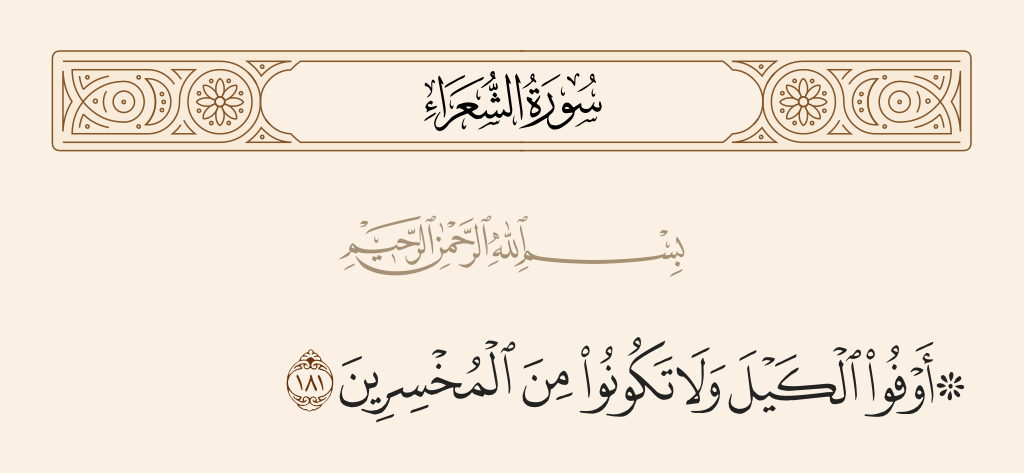 سُورَةُ الشُّعَرَاءِ
بِسْمِ ٱللَّهِ ٱلرَّحْمَٰنِ ٱلرَّحِيمِ
۞ أَوْفُوا۟ ٱلْكَيْلَ وَلَا تَكُونُوا۟ مِنَ ٱلْمُخْسِرِينَ ١٨١